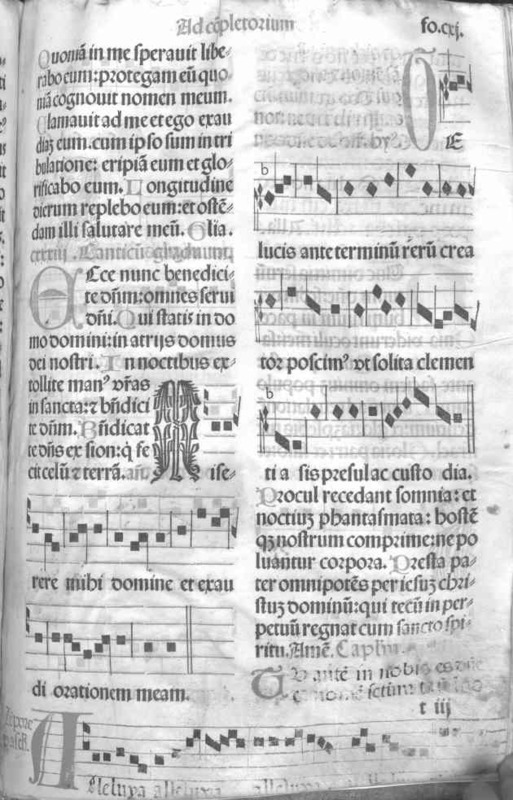 Ad cõpletorium
fo.cxj.
Quoniã in me sperauit libe⸗
rabo eum: protegam eũ quo
niã cognouit nomen meum.
Clamauit ad me et ego exau
diaȝ eum. cum ipso sum in tri
bulatione: eripiã eum et glo⸗
rificabo eum. Longitudine
dierum replebo eum: et ostẽ⸗
dam illi salutare meũ. Glia.
cxxxiij. Canticũ graduum
Ecce nunc benedici⸗
te dñm: omnes serui
dñi. Qui statis in do
mo domini: in atrijs domus
dei nostri. In noctibus ex⸗
tollite man⁹ vr̃as
in sancta: ⁊ bñdici
te dñm. Bñdicat
te dñs ex sion: q̃ fe
cit celũ ⁊ terrã. añ.
Mise⸗
rere mihi domine et exau
di orationem meam.
TE
lucis ante terminũ rerũ crea
tor poscim⁹ vt solita clemen
ti a sis presul ac custo dia.
Procul recedant somnia: et
noctiuȝ phantasmata: hostẽ
qȝ nostrum comprime: ne po
luantur corpora. Presta pa⸗
ter omnipotẽs per iesuȝ chri⸗
stuȝ dominũ: qui tecũ in per⸗
petuũ regnat cum sancto spi⸗
ritu. Amẽ. Capl'm.
Tu autẽ in nobis es dñe
t iij
Alleluya alleluya alleluya